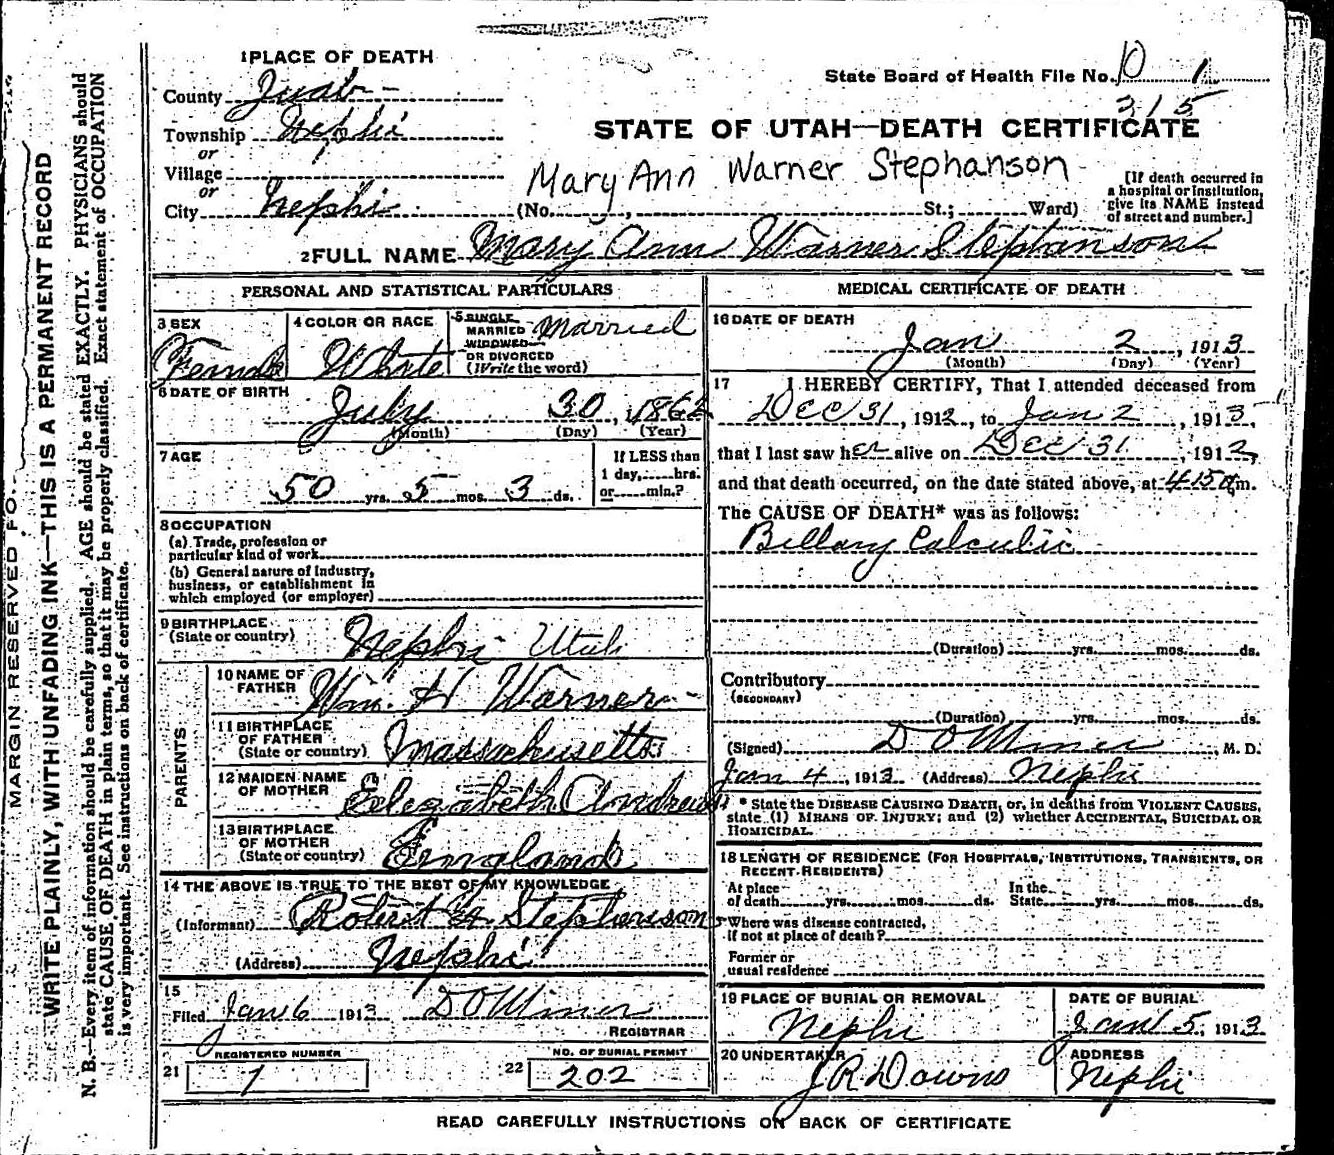 1 PLACE OF DEATH
County Juab
Township Nephi
or
Village
or
City Nephi
State Board of Health File No. 10 1
315
STATE OF UTAH—DEATH CERTIFICATE
Mary Ann Warner Stephanson
(No. , St.; Ward)
[If death occurred in
a hospital or institution,
give its NAME instead
of street and number.]
2 FULL NAME Mary Ann Warner Stephanson
PERSONAL AND STATISTICAL PARTICULARS
3 SEX
Female
4 COLOR OR RACE
White
5 SINGLE
MARRIED
WIDOWED
OR DIVORCED
(Write the word)
Married
6 DATE OF BIRTH
July 30, 1862
(Month) (Day) (Year)
7 AGE
50 yrs. 5 mos. 3 ds.
If LESS than
1 day, hrs.
or min.?
8 OCCUPATION
(a) Trade, profession or
particular kind of work
(b) General nature of industry,
business, or establishment in
which employed (or employer)
9 BIRTHPLACE
(State or country)
Nephi Utah
PARENTS
10 NAME OF
FATHER
Wm. H Warner
11 BIRTHPLACE
OF FATHER
(State or country)
Massachusetts
12 MAIDEN NAME
OF MOTHER
Elezabeth Andrews
13 BIRTHPLACE
OF MOTHER
(State or country)
England
14 THE ABOVE IS TRUE TO THE BEST OF MY KNOWLEDGE
(Informant) Robert Stephenson
(Address) Nephi
15
Filed Jan 6 1913 D O Miner
REGISTRAR
REGISTERED NUMBER
21 1
NO. OF BURIAL PERMIT
22 202
MEDICAL CERTIFICATE OF DEATH
16 DATE OF DEATH
Jan 2, 1913
(Month) (Day) (Year)
17 I HEREBY CERTIFY, That I attended deceased from
Dec 31, 1912, to Jan 2, 1913,
that I last saw her alive on Dec 31, 1912,
and that death occurred, on the date stated above, at 415 a m.
The CAUSE OF DEATH* was as follows:
Billary Calculii
(Duration) yrs. mos. ds.
Contributory
(SECONDARY)
(Duration) yrs. mos. ds.
(Signed) D O Miner, M. D.
Jan 4, 1913 (Address) Nephi
* State the DISEASE CAUSING DEATH, or, in deaths from VIOLENT CAUSES,
state (1) MEANS OF INJURY; and (2) whether ACCIDENTAL, SUICIDAL OR
HOMICIDAL.
18 LENGTH OF RESIDENCE (FOR HOSPITALS, INSTITUTIONS, TRANSIENTS, OR
RECENT RESIDENTS)
At place
of death yrs. mos. ds.
In the
State yrs. mos. ds.
Where was disease contracted,
if not at place of death?
Former or
usual residence
19 PLACE OF BURIAL OR REMOVAL
Nephi
DATE OF BURIAL
Jan 5, 1913
20 UNDERTAKER
J R Downs
ADDRESS
Nephi
READ CAREFULLY INSTRUCTIONS ON BACK OF CERTIFICATE
MARGIN RESERVED FO
WRITE PLAINLY, WITH UNFADING INK—THIS IS A PERMANENT RECORD
N. B.—Every item of information should be carefully supplied. AGE should be stated EXACTLY. PHYSICIANS should
state CAUSE OF DEATH in plain terms, so that it may be properly classified. Exact statement of OCCUPATION
is very important. See instructions on back of certificate.